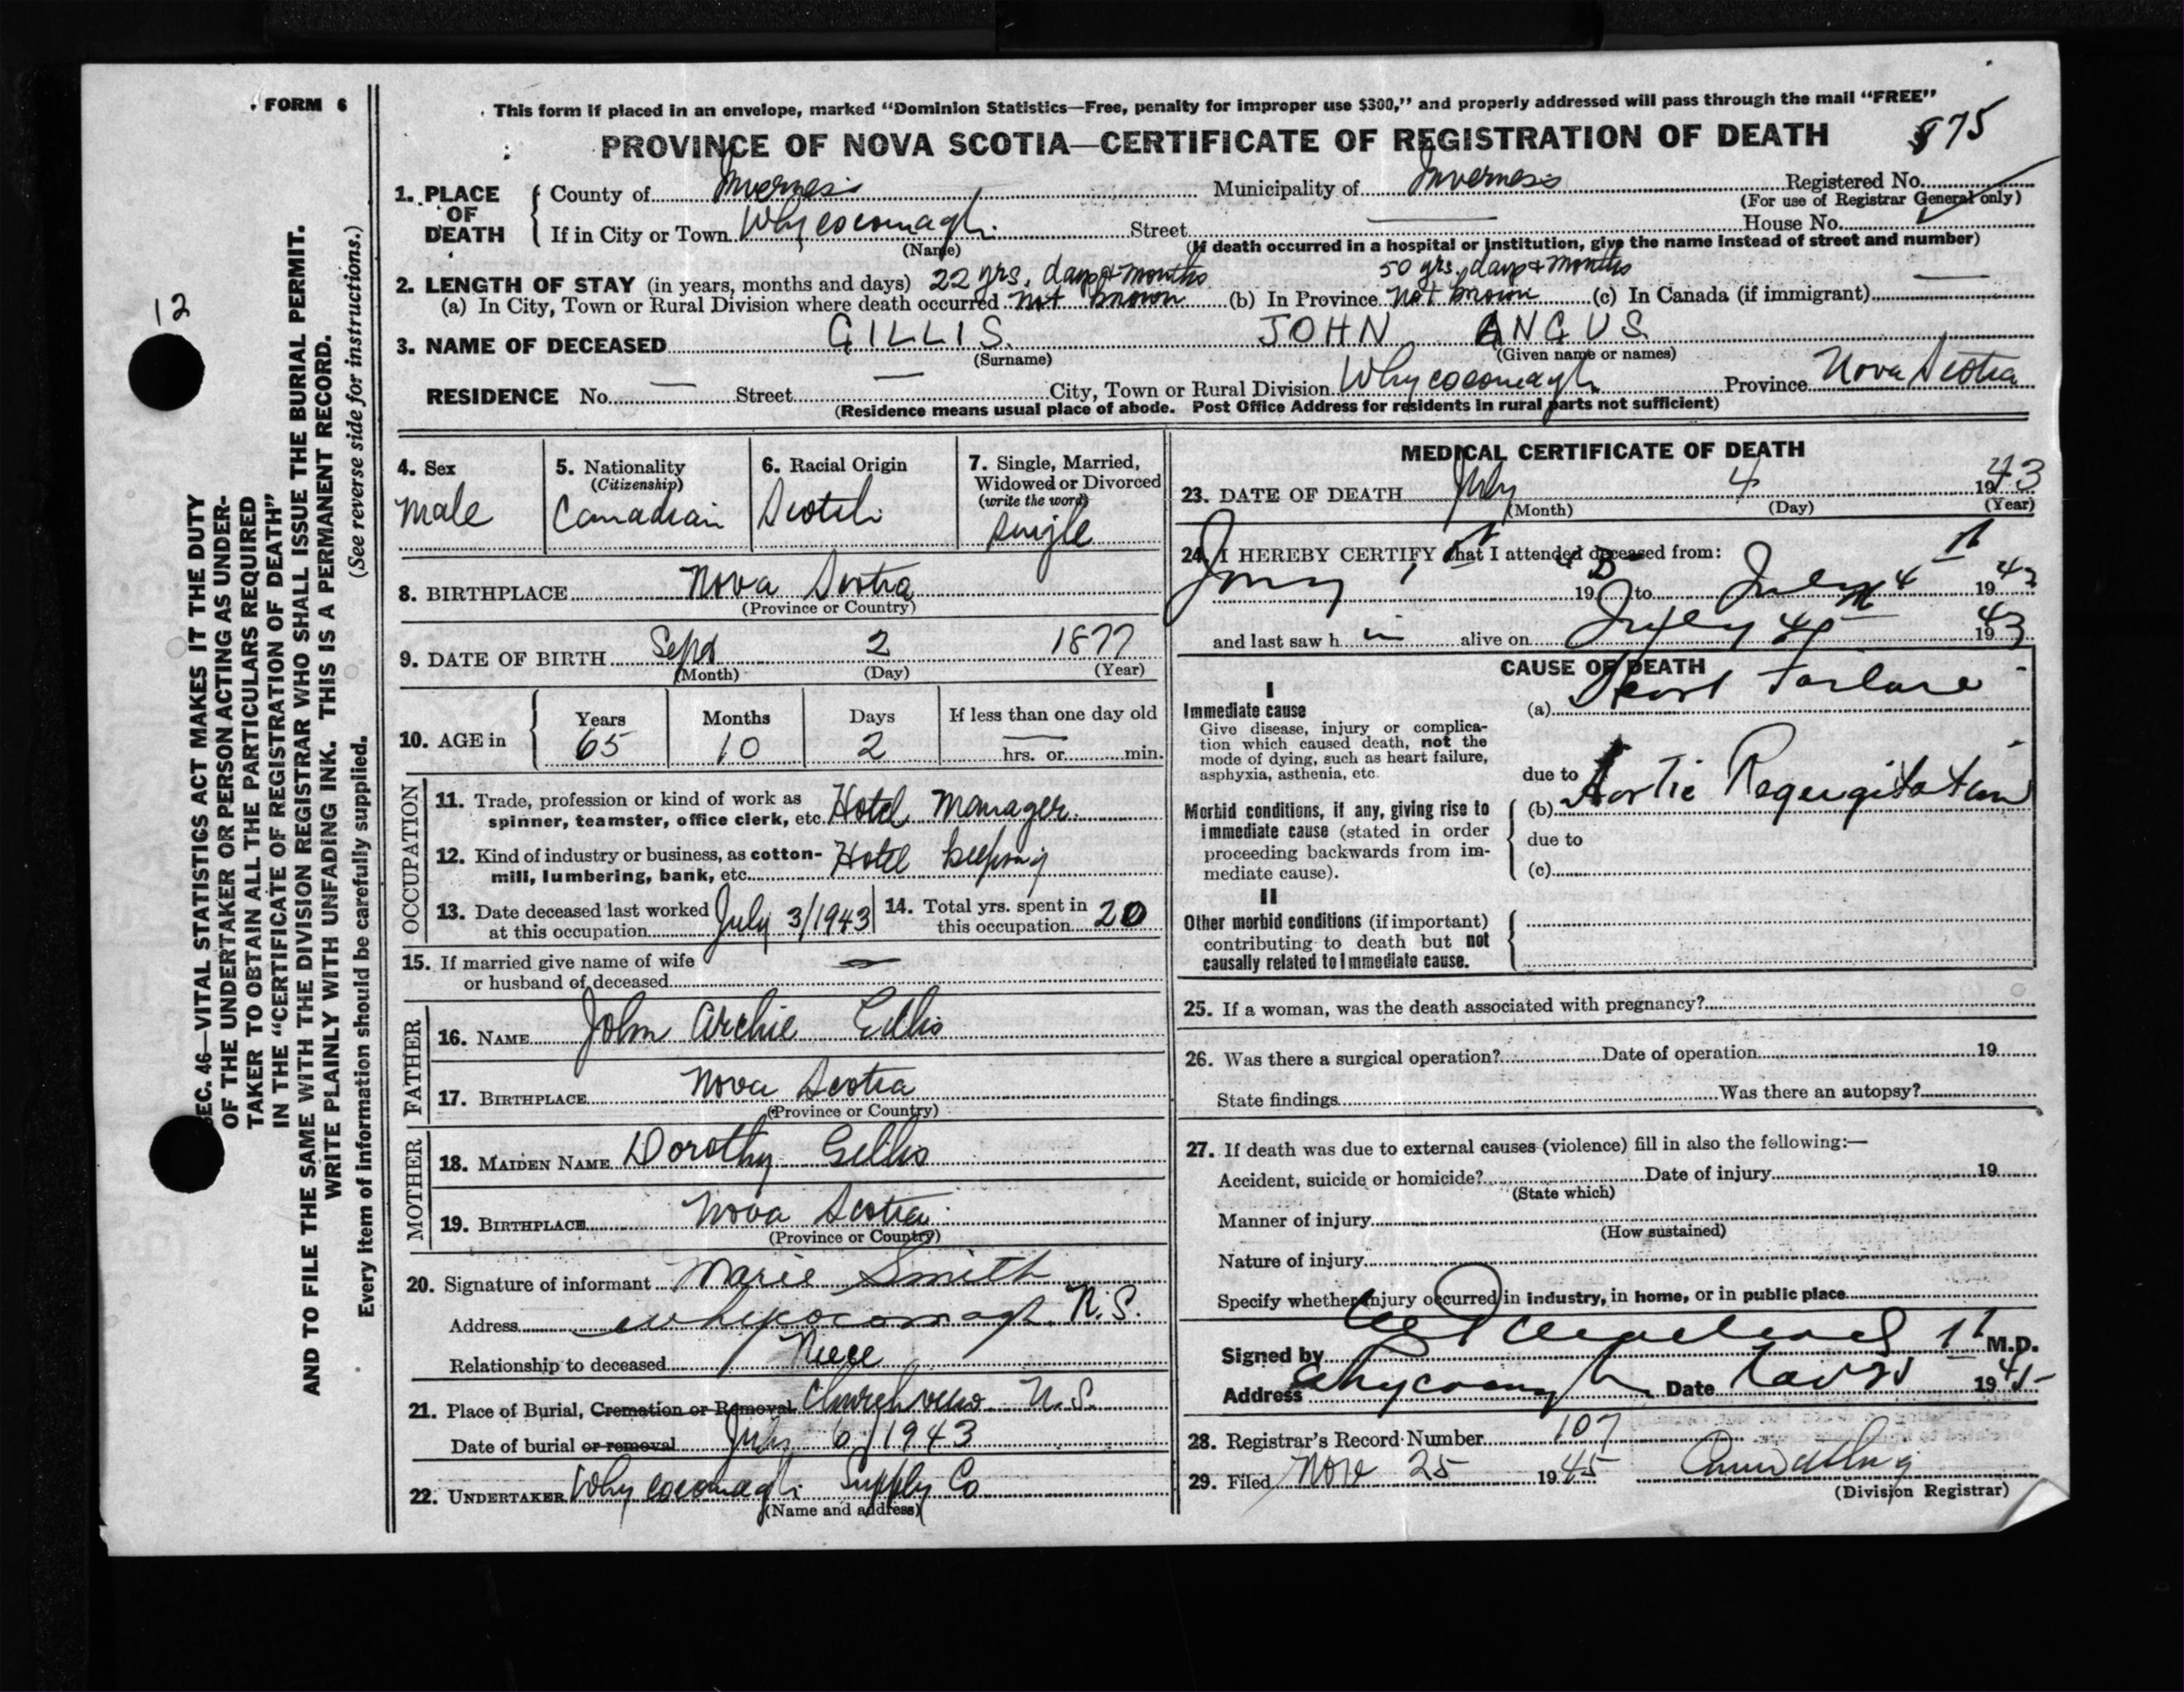 FORM 6
This form if placed in an envelope, marked “Dominion Statistics—Free, penalty for improper use $300,” and properly addressed will pass through the mail “FREE”
PROVINCE OF NOVA SCOTIA—CERTIFICATE OF REGISTRATION OF DEATH 875
1. PLACE OF DEATH
County of Inverness Municipality of Inverness Registered No.
(For use of Registrar General only)
If in City or Town Whycocomagh Street — House No.
(Name) (If death occurred in a hospital or institution, give the name instead of street and number)
2. LENGTH OF STAY (in years, months and days) 22 yrs. days & months 50 yrs, days & months
(a) In City, Town or Rural Division where death occurred not known (b) In Province not known (c) In Canada (if immigrant) —
3. NAME OF DECEASED GILLIS JOHN ANGUS
(Surname) (Given name or names)
RESIDENCE No. — Street — City, Town or Rural Division Whycocomagh Province Nova Scotia
(Residence means usual place of abode. Post Office Address for residents in rural parts not sufficient)
4. Sex
male
5. Nationality
(Citizenship)
Canadian
6. Racial Origin
Scotch
7. Single, Married,
Widowed or Divorced
(write the word)
single
8. BIRTHPLACE Nova Scotia
(Province or Country)
9. DATE OF BIRTH Sept 2 1877
(Month) (Day) (Year)
10. AGE in Years Months Days If less than one day old
65 10 2 — hrs. or min.
OCCUPATION
11. Trade, profession or kind of work as
spinner, teamster, office clerk, etc. Hotel manager.
12. Kind of industry or business, as cotton-
mill, lumbering, bank, etc. Hotel keeping
13. Date deceased last worked
at this occupation July 3/1943
14. Total yrs. spent in
this occupation 20
15. If married give name of wife
or husband of deceased —
FATHER
16. NAME John Archie Gillis
17. BIRTHPLACE Nova Scotia
(Province or Country)
MOTHER
18. MAIDEN NAME Dorothy Gillis
19. BIRTHPLACE Nova Scotia
(Province or Country)
20. Signature of informant Marie Smith
Address whycocomagh N.S.
Relationship to deceased Niece
21. Place of Burial, Cremation or Removal Churchview N.S.
Date of burial or removal July 6/1943
22. UNDERTAKER Whycocomagh Supply Co
(Name and address)
MEDICAL CERTIFICATE OF DEATH
23. DATE OF DEATH July 4 1943
(Month) (Day) (Year)
24. I HEREBY CERTIFY that I attended deceased from:
1 19 to July 4 1943
and last saw h alive on July 4 1943
CAUSE OF DEATH
I
Immediate cause
Give disease, injury or complica-
tion which caused death, not the
mode of dying, such as heart failure,
asphyxia, asthenia, etc
(a) Heart Failure
due to
Morbid conditions, if any, giving rise to
immediate cause (stated in order
proceeding backwards from im-
mediate cause).
(b) Aortic Regurgitation
due to
(c)
II
Other morbid conditions (if important)
contributing to death but not
causally related to immediate cause.
25. If a woman, was the death associated with pregnancy?
26. Was there a surgical operation? Date of operation 19
State findings Was there an autopsy?
27. If death was due to external causes (violence) fill in also the following:—
Accident, suicide or homicide? Date of injury 19
(State which)
Manner of injury
(How sustained)
Nature of injury
Specify whether injury occurred in industry, in home, or in public place
Signed by M.D.
Address Whycocomagh Date 1945
28. Registrar's Record Number 107
29. Filed Nov 25 1945
(Division Registrar)
12
SEC. 46—VITAL STATISTICS ACT MAKES IT THE DUTY
OF THE UNDERTAKER OR PERSON ACTING AS UNDER-
TAKER TO OBTAIN ALL THE PARTICULARS REQUIRED
IN THE “CERTIFICATE OF REGISTRATION OF DEATH”
AND TO FILE THE SAME WITH THE DIVISION REGISTRAR WHO SHALL ISSUE THE BURIAL PERMIT.
WRITE PLAINLY WITH UNFADING INK. THIS IS A PERMANENT RECORD.
(See reverse side for instructions.)
Every item of information should be carefully supplied.